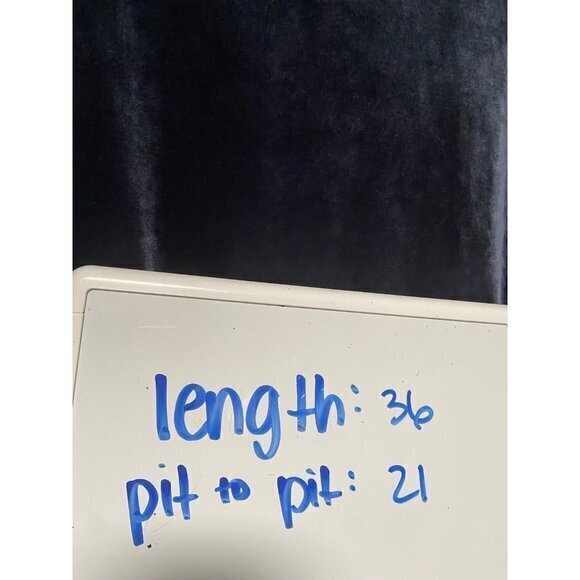 length: 36
pit to pit: 21